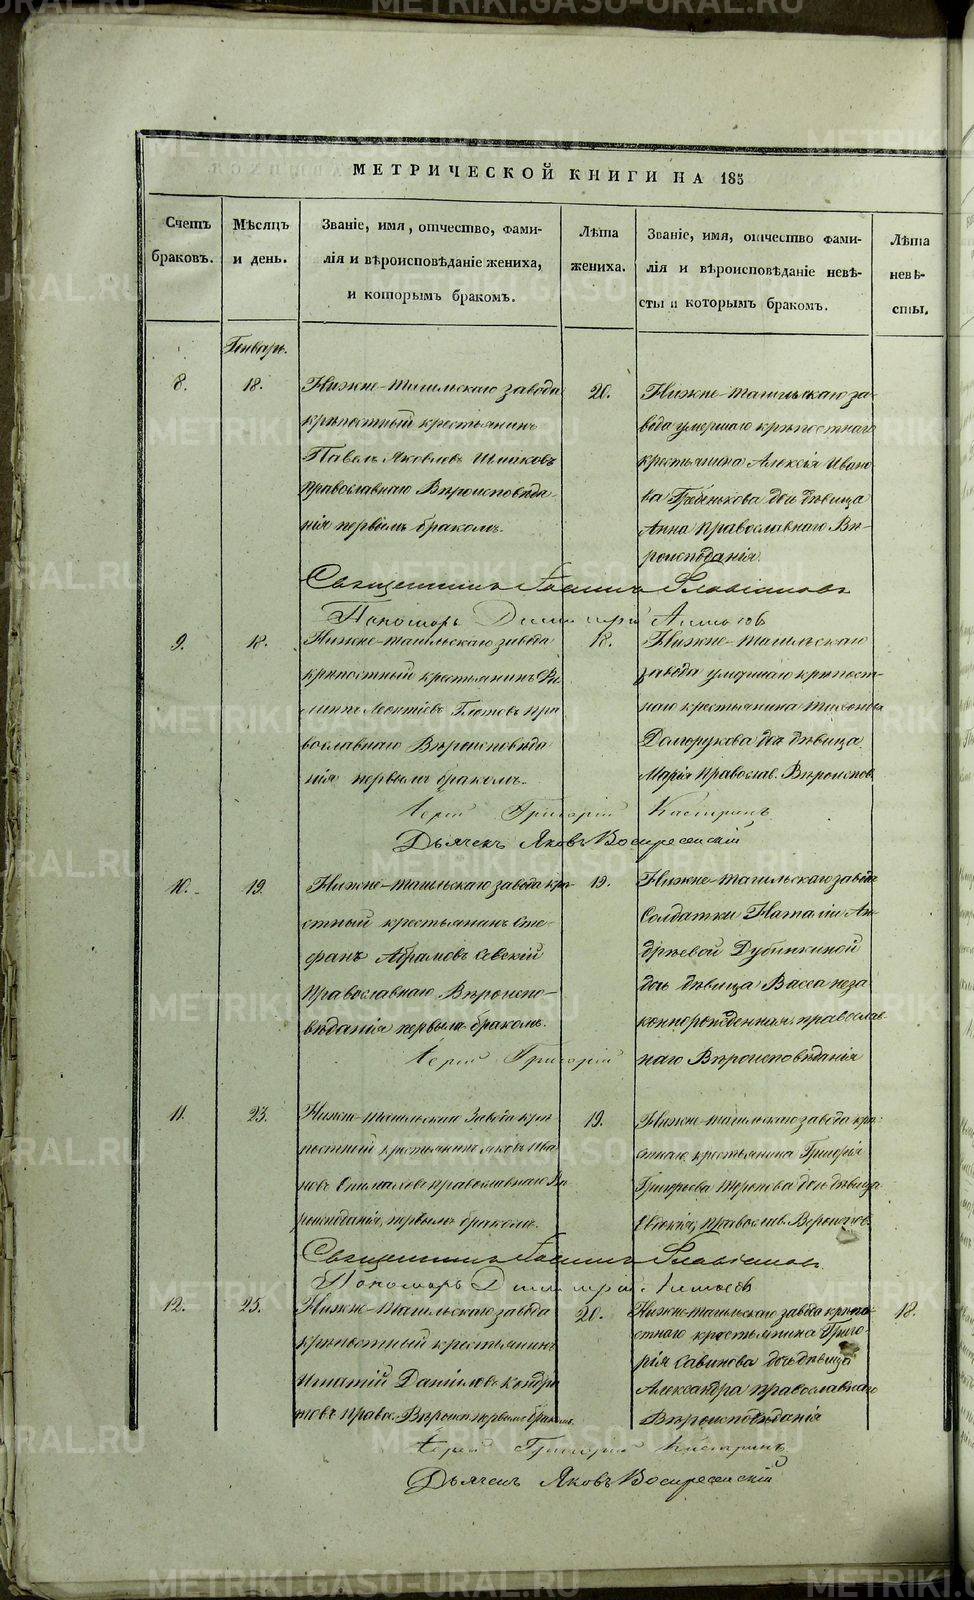 МЕТРИЧЕСКОЙ КНИГИ НА 185
Счетъ браковъ.
Мѣсяцъ и день.
Званіе, имя, отчество, фами-
лія и вѣроисповѣданіе жениха,
и которымъ бракомъ.
Лѣта жениха.
Званіе, имя, отчество фами-
лія и вѣроисповѣданіе невѣ-
сты и которымъ бракомъ.
Лѣта
невѣ-
сты.
Генварь.
8.
18.
Нижне-тагильскаго завода
крѣпостный крестьянинъ
Павелъ Яковлевъ
православнаго Вѣроисповѣда-
нія первымъ бракомъ.
20.
Нижне-тагильскаго за-
вода умершаго крѣпостнаго
крестьянина Алексія Ивано
ва дочь дѣвица
Анна Православнаго Вѣ-
роисповѣданія.
Священникъ Іоаннъ Славниновъ
Пономарь Димитрій
9.
18.
Нижне-тагильскаго завода
крѣпостный крестьянинъ Фи
липпъ Леонтіевъ Глотовъ пра
вославнаго Вѣроисповѣда
нія первымъ бракомъ.
18.
Нижне-тагильскаго
завода умершаго крѣпост-
наго крестьянина
Долгорукова дочь дѣвица
Марія Православ. Вѣроиспов.
Іерей Григорій Кастринъ
Дьячекъ Яковъ Воскресенскій
10.
19.
Нижне-тагильскаго завода крѣпо-
стный крестьянинъ Сте-
фанъ Абрамовъ Севскій
Православнаго Вѣроиспо-
вѣданія первымъ бракомъ.
19.
Нижне-тагильскаго завода
Солдатки Наталіи Ан-
дрѣевой Дубинкиной
дочь дѣвица Васса неза
коннорожденная, православ-
наго Вѣроисповѣданія
Іерей Григорій
11.
23.
Нижне-тагильскаго Завода крѣ
постный крестьянинъ Яковъ Ива
новъ православнаго Вѣ
роисповѣданія, первымъ бракомъ.
19.
Нижне-тагильскаго завода крѣпо-
стнаго крестьянина Григорія
Григорьева дочь дѣвица
Евдокія, православ. Вероиспов.
Священникъ Іоаннъ Славниновъ.
Пономарь Димитрій
12.
25.
Нижне-тагильскаго завода
крѣпостный крестьянинъ
Игнатій Даниловъ Кондра
товъ Правос. Вѣроисп. первымъ бракомъ.
20.
Нижне-тагильскаго завода крѣпо-
стнаго крестьянина Григо-
рія Савинова дочь дѣвица
Александра православнаго
Вѣроисповѣданія
18.
Іерей Григорій Кастринъ.
Дьячекъ Яковъ Воскресенскій
METRIKI.GASO-URAL.RU